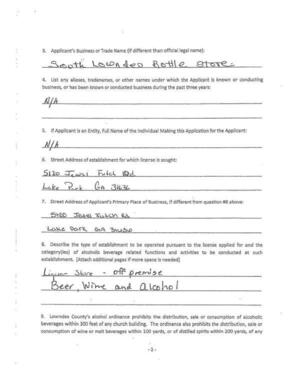 3. Applicant's Business or Trade Name (if different than official legal name):
South Lowndes Bottle Store
4. List any aliases, tradenames, or other names under which the Applicant is known or conducting
business, or has been known or conducted business during the past three years:
N/A
5. If Applicant is an Entity, Full Name of the Individual Making this Application for the Applicant:
N/A
6. Street Address of establishment for which license is sought:
5120 Jewel Futch Rd.
Lake Park GA 31636
7. Street Address of Applicant's Primary Place of Business, if different from question #6 above:
Lake Park GA 31636
8. Describe the type of establishment to be operated pursuant to the license applied for and the
category(ies) of alcoholic beverage related functions and activities to be conducted at such
establishment. [Attach additional pages if more space is needed]
Liquor Store - off premise
Beer, Wine and alcohol
9. Lowndes County's alcohol ordinance prohibits the distribution, sale or consumption of alcoholic
beverages within 300 feet of any church building. The ordinance also prohibits the distribution, sale or
consumption of wine or malt beverages within 100 yards, or of distilled spirits within 200 yards, of any
-2-